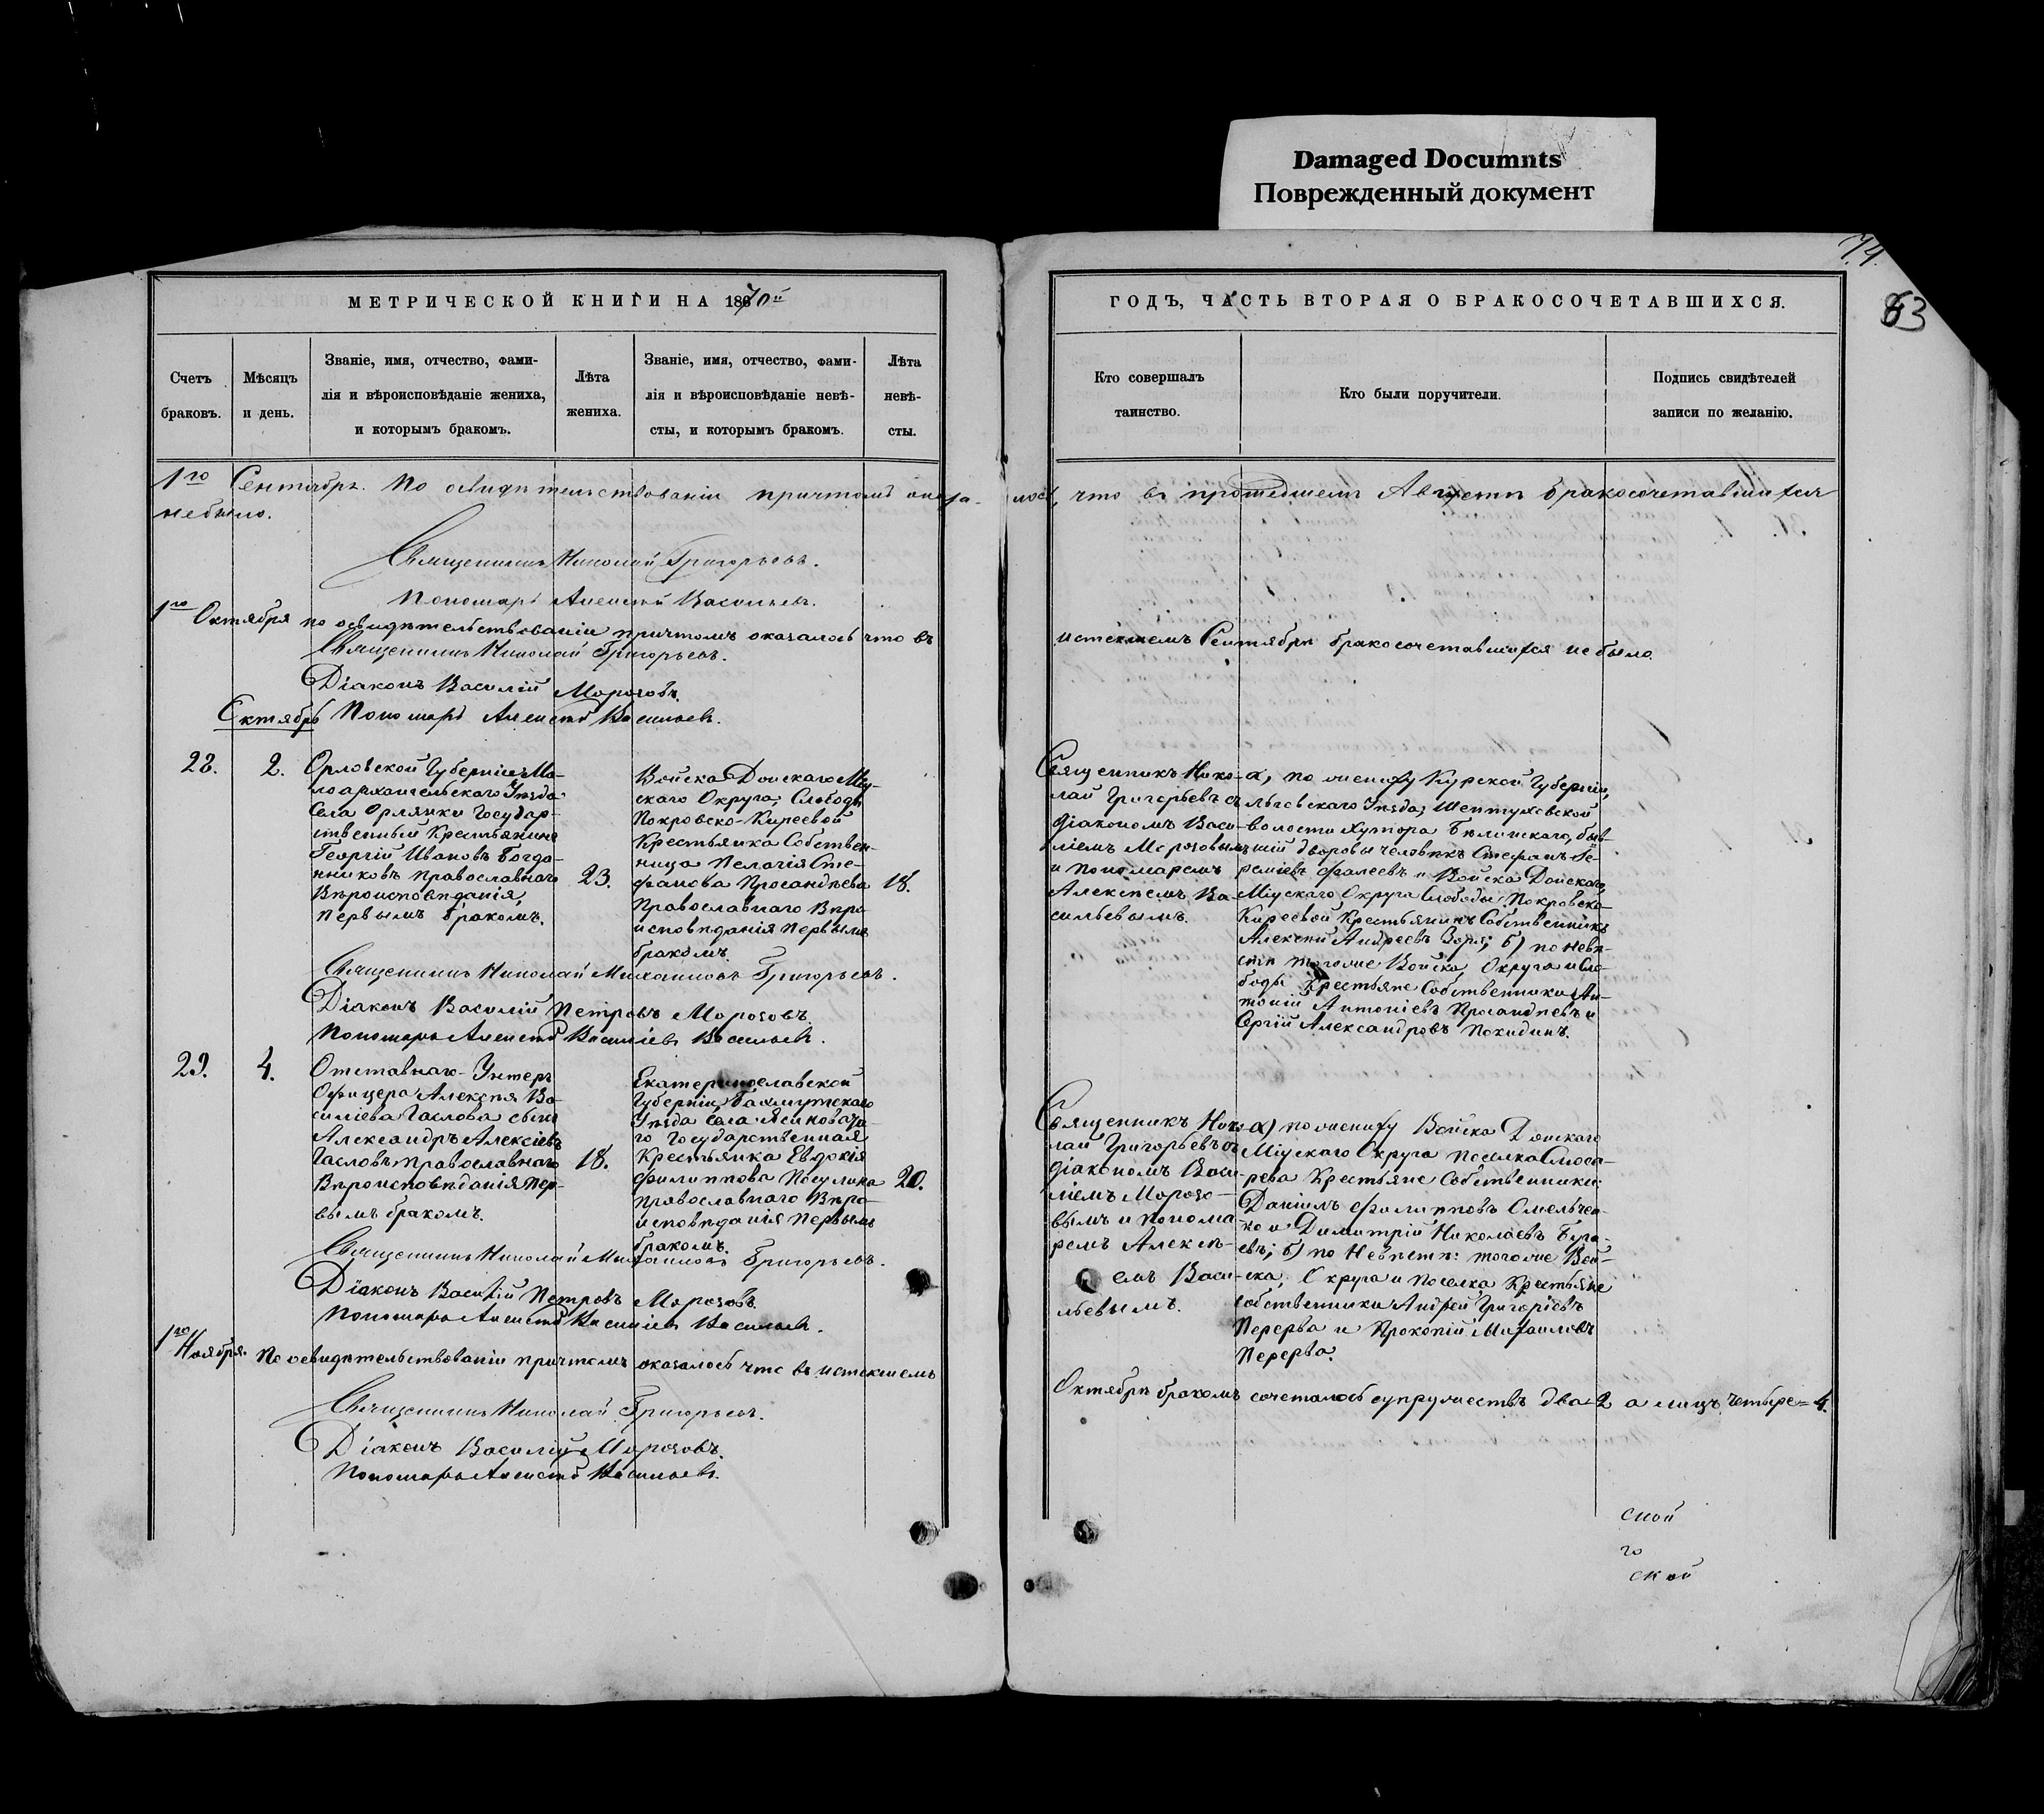 Damaged Documnts
Поврежденный документ
74.
63
МЕТРИЧЕСКОЙ КНИГИ НА 1870й
Счетъ
браковъ.
Мѣсяцъ
и день.
Званіе, имя, отчество, фами-
лія и вѣроисповѣданіе жениха,
и которымъ бракомъ.
Лѣта
жениха.
Званіе, имя, отчество, фами-
лія и вѣроисповѣданіе невѣ-
сты, и которымъ бракомъ.
Лѣта
невѣ-
сты.
ГОДЪ, ЧАСТЬ ВТОРАЯ О БРАКОСОЧЕТАВШИХСЯ.
Кто совершалъ
таинство.
Кто были поручители.
Подпись свидѣтелей
записи по желанію.
1го Сентября. По освидѣтельствованіи причтомъ оказа-лось, что въ прошедшемъ Августѣ бракосочетавшихся
небыло.
Священникъ Николай Григорьевъ.
Пономарь Алексѣй Васильевъ.
1го Октября по освидѣтельствованіи причтомъ оказалось что въ истекшемъ Сентябрѣ бракосочетавшихся не было.
Священникъ Николай Григорьевъ.
Діаконъ Василій Морозовъ.
Октябрь Пономарь Алексѣй Васильевъ.
28.
2.
Орловской Губерніи Ма-
лоархангельскаго Уѣзда
Села Орлянки Государ-
ственный Крестьянинъ
Георгій Ивановъ Богда-
нниковъ Православнаго
Вѣроисповѣданія,
первымъ бракомъ.
23.
Войска Донскаго Міу-
скаго Округа, Слободы
Покровско-Киреевой
Крестьянка Собствен-
ница Пелагія Сте-
фанова Просандѣева
Православнаго Вѣро-
исповѣданія Первымъ
бракомъ.
18.
Священникъ Нико-
лай Григорьевъ съ
діакономъ Васи-
ліемъ Морозовымъ
и пономаремъ
Алексѣемъ Ва-
сильевымъ.
а, по жениху Курской Губерніи,
Льговскаго Уѣзда, Шептуховской
волости Хутора Бѣлинскаго, быв-
шій дворовый человѣкъ Стефанъ Іе-
реміевъ Фалеевъ и Войска Донскаго,
Міускаго Округа Слободы Покровско-
Киреевой Крестьянинъ Собственникъ
Алексѣй Андреевъ Заря; б) по невѣ-
стѣ тогоже Войска, Округа и Сло-
боды Крестьяне Собственники Ан-
тоній Антоніевъ Просандѣевъ и
Сергій Александровъ Покидинъ.
Священникъ Николай Михаиловъ Григорьевъ.
Діаконъ Василій Петровъ Морозовъ.
Пономарь Алексѣй Василіевъ Васильевъ.
29.
4.
Отставнаго Унтеръ
Офицера Алексѣя Ва-
силіева Гаслова сынъ
Александръ Алексіевъ
Гасловъ Православнаго
Вѣроисповѣданія Пер-
вымъ бракомъ.
18.
Екатеринославской
Губерніи, Бахмутскаго
Уѣзда Села Ясиковача-
го Государственная
Крестьянка Евдокія
Филиппова
православнаго Вѣро-
исповѣданія Первымъ
бракомъ.
20.
Священникъ Нико-
лай Григорьевъ съ
діакономъ Васи-
ліемъ Морозо-
вымъ и понома-
ремъ Алексѣ-
емъ Васи-
льевымъ.
а) по жениху Войска Донскаго
Міускаго Округа Поселка Слюса-
рева Крестьяне Собственники:
Даніилъ Филипповъ Омельчен-
ко и Димитрій Николаевъ Буга-
евъ; б) по Невѣстѣ: тогоже Вой-
ска, Округа и Поселка, Крестьяне
собственники Андрей Григоріевъ
Перерва и Прокопій Михаиловъ
Перерва.
Священникъ Николай Михаиловъ Григорьевъ.
Діаконъ Василій Петровъ Морозовъ.
Пономарь Алексѣй Василіевъ Васильевъ.
1го Ноября. По освидѣтельствованіи причтомъ оказалось что въ истекшемъ Октябрѣ бракомъ сочеталось супружествъ два=2 а лицъ четыре=4.
Священникъ Николай Григорьевъ.
Діаконъ Василій Морозовъ.
Пономарь Алексѣй Васильевъ.
ской
го
ской